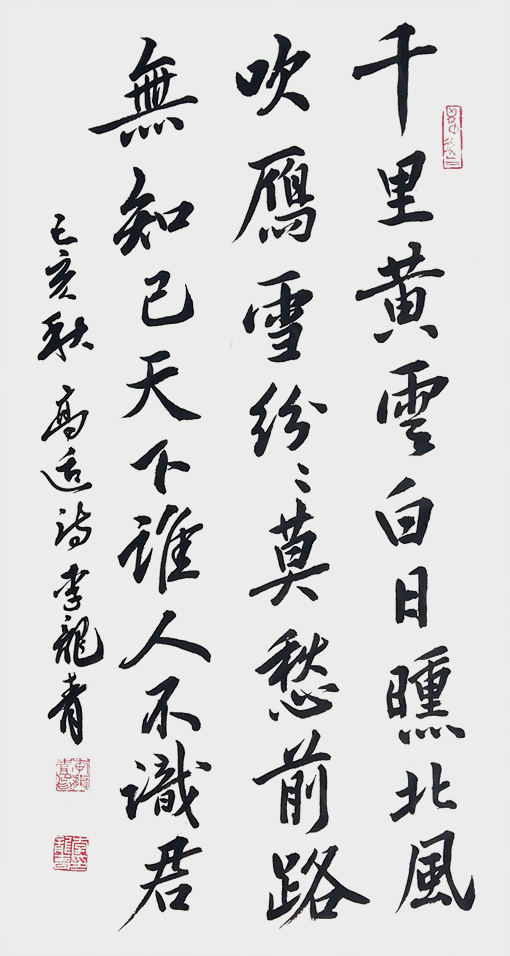 千里黄雲白日曛北風
吹鴈雪紛〻莫愁前路
無知己天下誰人不識君
己亥秋高适詩李龍青